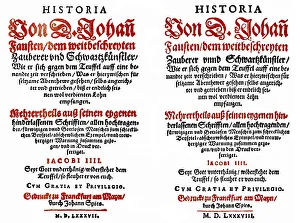 HISTORIA
Von D. Johañ
Fausten / dem weitbeschreyten
Zauberer vnd Schwartzkünstler /
Wie er sich gegen dem Teuffel auff eine be-
nandte zeit verschrieben / Was er hierzwischen für
seltzame Abenthewr gesehen / selbs angerich-
tet vnd getrieben / biß er endtlich sei-
nen wol verdienten Lohn
empfangen.
Mehrertheils auß seinen eygenen
hinderlassenen Schrifften / allen hochtragen-
den / fürwitzigen vnd Gottlosen Menschen zum schrecklichen
IACOBI IIII.
Seyt Gott vnterthänig / widerstehet dem
Teuffel / so fleuhet er von euch.
CVM GRATIA ET PRIVILEGIO.
Gedruckt zu Franckfurt am Mayn /
durch Johann Spies.
M. D. LXXXVII.
HISTORIA
Von D. Johañ
Fausten / dem weitbeschreyten
Zauberer vnnd Schwartzkünstler /
Wie er sich gegen dem Teuffel auff eine be-
nandte zeit verschrieben / Was er hierzwischen für
seltzame Abenthewer gesehen / selbs angerich-
tet vnd getrieben / biß er endtlich sei-
nen wol verdienten Lohn
empfangen.
Mehrertheils auß seinen eygenen hin-
derlassenen Schrifften / allen hochtragenden /
IACOBI IIII.
Seyt Gott vnderthänig / widerstehet dem
Teuffel / so fleuhet er von euch.
CVM GRATIA ET PRIVILEGIO.
Gedruckt zu Franckfurt am Mayn /
durch Johann Spies.
M. D. LXXXVII.